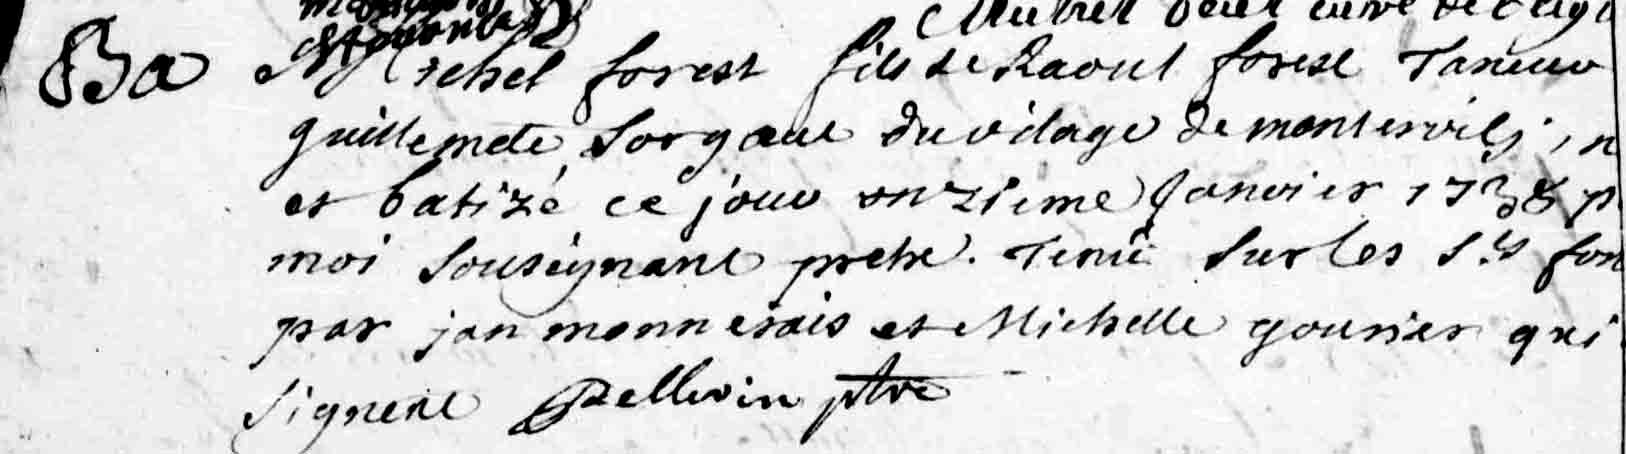 Ba Michel forest fils de Raoul forest
guillemete Sorgeut du vilage de montervily, n
et batizé ce jour onzieme Janvier 1738 p
moi sousignant pretre. Tenû sur les Sts fon
par jan monnerais et Michelle gourier qui
signent Pellerin ptre